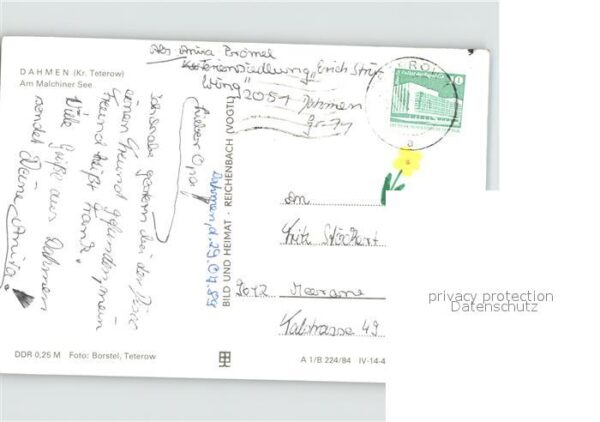 DAHMEN (Kr. Teterow)
Am Malchiner See
Abs. Anita Prömel
Feriensiedlung "Erich
2051 Dahmen
Lieber Opa!
Dahmen, d. 29.07.89
Ich habe gestern bei der
einen Freund gefunden, mein
Freund heißt Frank.
Viele Grüße aus Dahmen
sendet Deine Anita.
BILD UND HEIMAT · REICHENBACH (VOGTL)
An
Fritz Stöckert
9612 Meerane
Talstrasse 49
DDR 0,25 M Foto: Börstel, Teterow
A 1/B 224/84 IV-14-4
privacy protection
Datenschutz